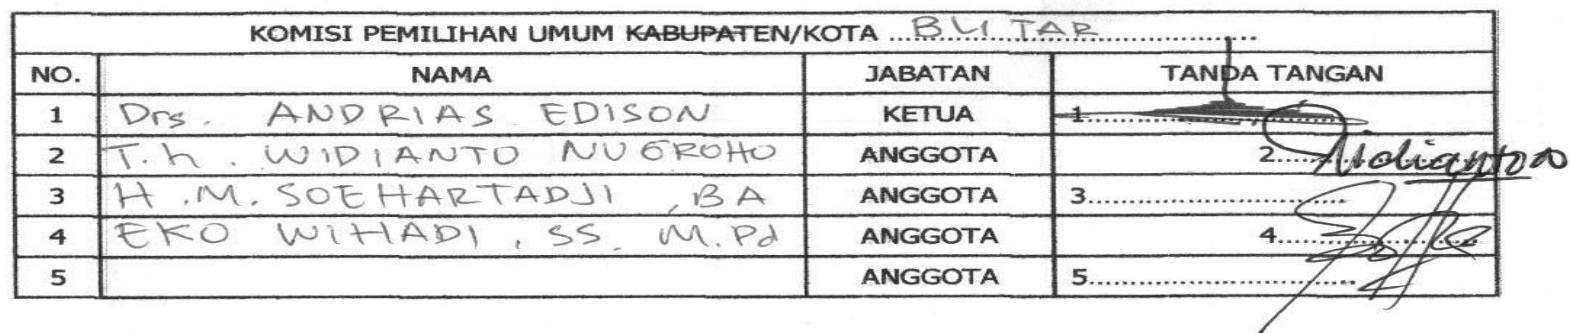 KOMISI PEMILIHAN UMUM KABUPATEN/KOTA ...BLITAR...
NO. NAMA JABATAN TANDA TANGAN
1 Drs. ANDRIAS EDISON KETUA 1...
2 T.h. WIDIANTO NUGROHO ANGGOTA 2... Widianto
3 H.M. SOEHARTADJI, BA ANGGOTA 3...
4 EKO WIHADI, SS. M.Pd ANGGOTA 4...
5 ANGGOTA 5...